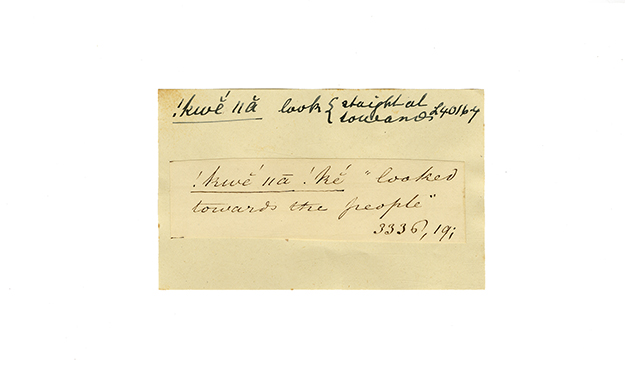 !kwĕ́ ǁā look { straight at
towards L40164
!kwĕ́ ǁā !kĕ́ "looked
towards the people"
3336, 19;